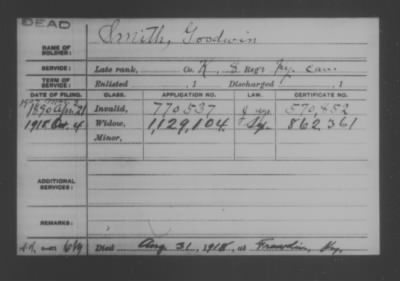 DEAD
Smith, Goodwin
NAME OF SOLDIER:
SERVICE: Late rank, Co. K, 8 Reg't Ky. Cav.
TERM OF SERVICE: Enlisted , 1 Discharged , 1
DATE OF FILING. CLASS. APPLICATION NO. LAW. CERTIFICATE NO.
1890 Apr. 21 Invalid, 770,537 570,852
1918 Oct. 4 Widow, 1,129,104. 862,361
Minor,
ADDITIONAL SERVICES:
REMARKS:
Died Aug 31, 1918, at Ky.